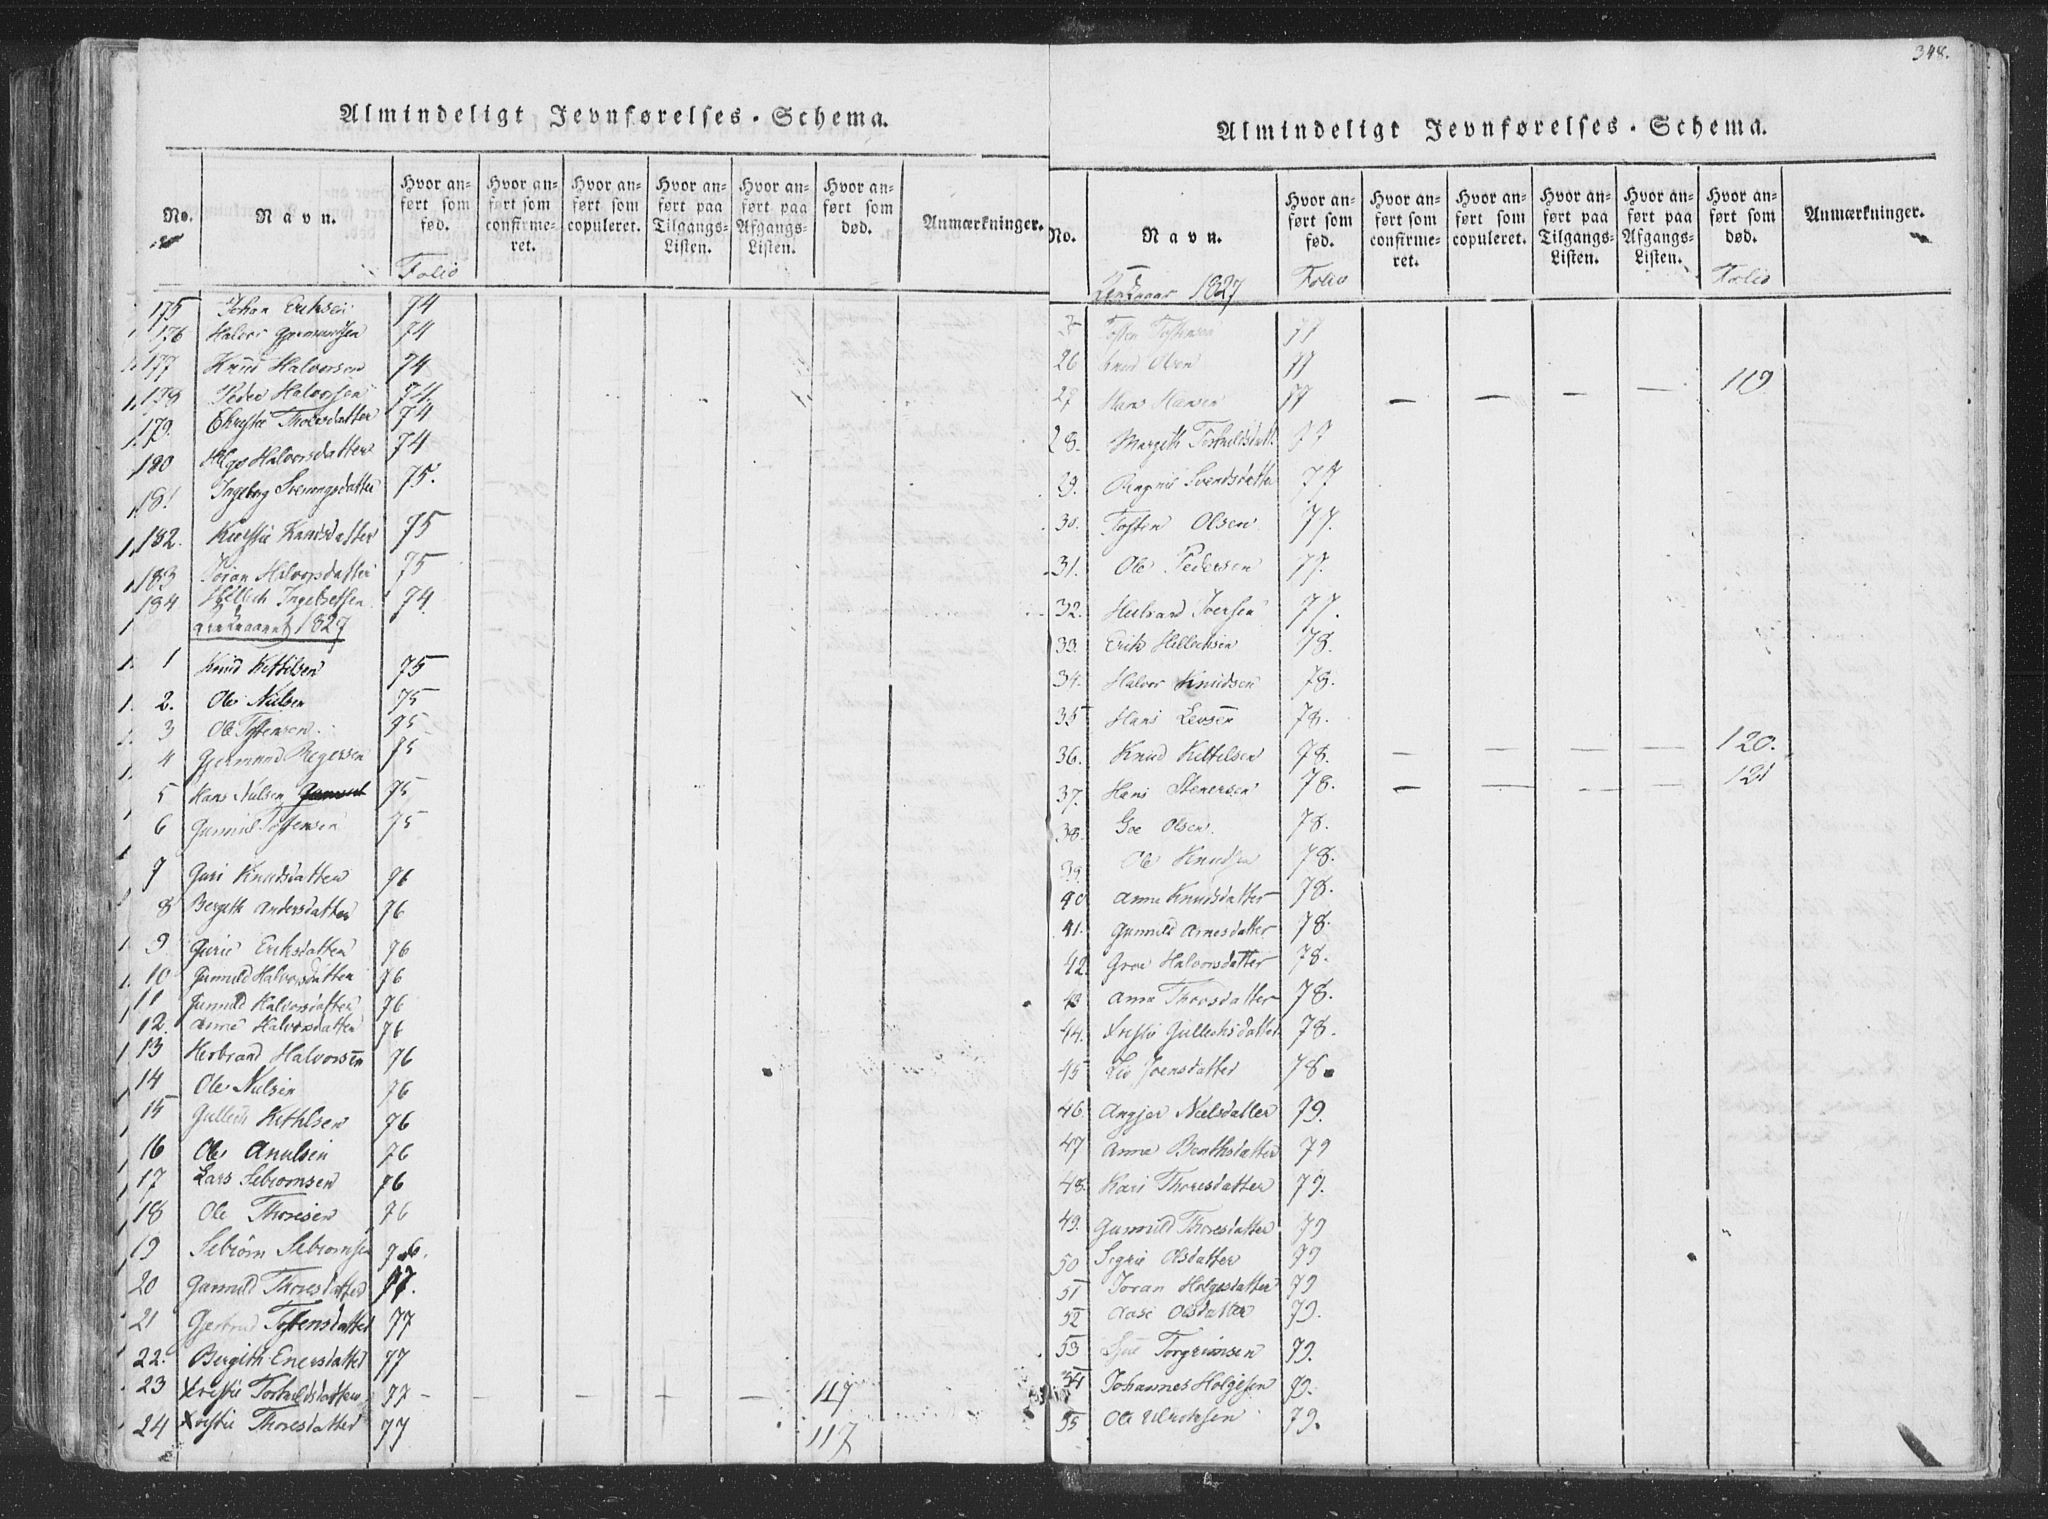 348.
Almindeligt Jevnførelses-Schema.
No. Navn. Hvor anført som fød. Hvor anført som confirmeret. Hvor anført som copuleret. Hvor anført paa Tilgangs-Listen. Hvor anført paa Afgangs-Listen. Hvor anført som død. Anmærkninger.
Folio
175 Johan Eriksen 74
176 Halvor Gjermundsen 74
177 Knud Halvorsen 74
178 Peder Halvorsen 74
179. Christie Thoresdatter 74
180 Helge Halvorsdatter 74
181 Ingeborg Sveningsdatter 75.
182. Kirstie Knudsdatter 75
183 Jøran Halvorsdatter 75
184 Hellech Ingebretsen 74
1827
1 Knud Kittilsen 75
2. Ole Nielsen 75
3 Ole Tostensen 75
4 Gjermund 75
5 Hans Nielsen 75
6 Gunnul Tostensen 75
7 Guri Knudsdatter 76
8 Bergith Andersdatter 76
9 Gurie Eriksdatter 76
10 Gunnild Halvorsdatter 76
11 Gunnild Halvorsdatter 76
12. Anne Halvorsdatter 76
13 Herbrand Halvorsen 76
14 Ole Nielsen 76
15 Gullech Kithlsen 76
16 Ole 76
17 Lars Sebiørnsen 76
18 Ole Thoresen 76
19 Sebiørn Sebiørnsen 76.
20 Gunnild Thoresdatter 77.
21 Gjertrud Tostensdatter 77
22. Bergith Enersdatter 77
23 Xristie Torkildsdatter 77 - - - - - 117
24 Xristie Thoresdatter 77 117
Almindeligt Jevnførelses-Schema.
No. Navn. Hvor anført som fød. Hvor anført som confirmeret. Hvor anført som copuleret. Hvor anført paa Tilgangs-Listen. Hvor anført paa Afgangs-Listen. Hvor anført som død. Anmærkninger.
1827 Folio Folio
Tosten Tostensen 77
26 Knud Olsen 77
27 Hans Hansen 77 - - - - 119
28. Margith Torkildsdatt 77
29. Ragnil Svendsdatter 77
30. Tosten Olsen 77.
31. Ole Pedersen 77.
32. Herbrand Iversen 77.
33. Erik Hellechsen 78.
34. Halvor Knudsen 78.
35 Hans 78.
36. Knud Kittelsen 78. - - - - 120.
37. Hans Stenersen 78. - - - - 121
38. Goe Olsen. 78.
39. Ole Knudsen 78.
40 Anne Knudsdatter 78.
41. Gunnild Arnesdatter 78.
42. Groe Halvorsdatter 78.
43 Anne Thoresdatter 78.
44. Xristie Gullechsdatter 78.
45 Liv Joensdatter 78.
46. Angjer Nielsdatter 79.
47 Anne 79
48. Kari Thoresdatter 79.
49. Gunnild Thoresdatter 79
50 Sigrie Olsdatter 79
51 Jøran Helgesdatter 79
52 Aase Olsdatter 79.
53 Torgrimsen 79.
54 Johannes Holgesen 79.
55 Ole 79.